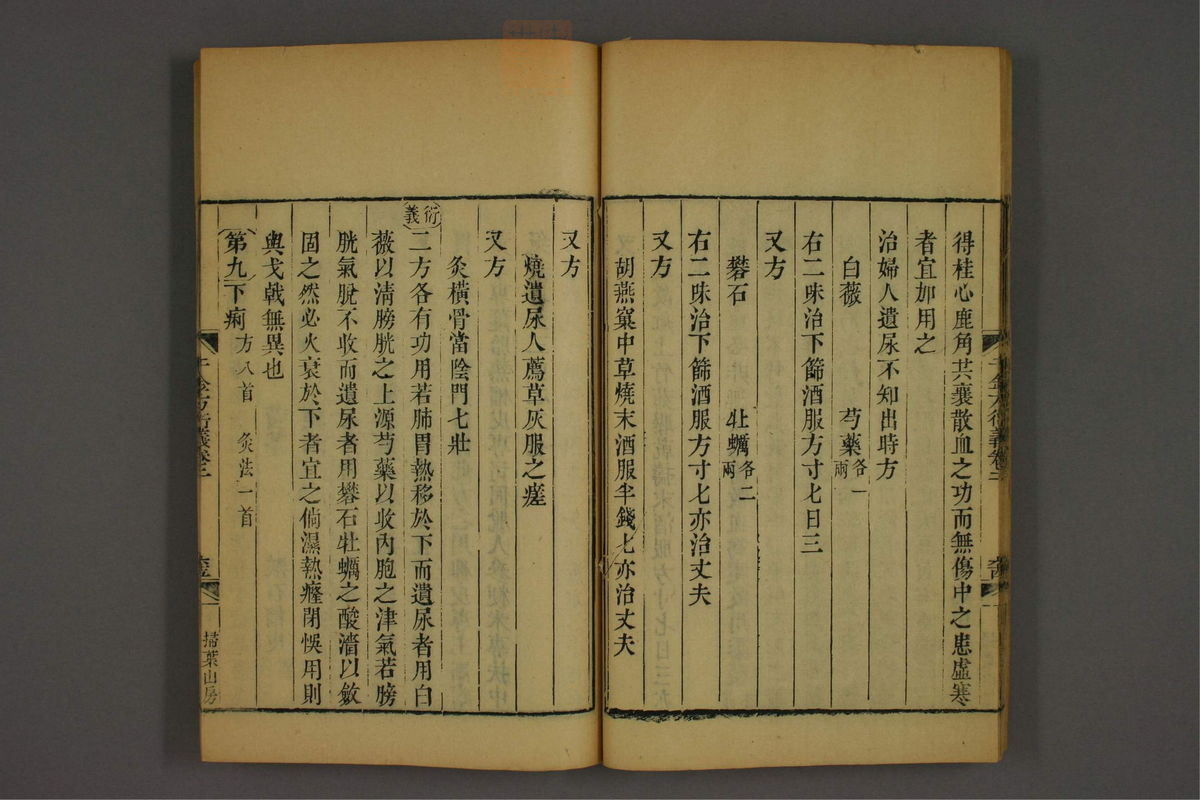 得桂心鹿角共襄散血之功而無傷中之患虛寒
者宜加用之
治婦人遺尿不知出時方
白薇　芍藥各一兩
右二味治下篩酒服方寸匕日三
又方
礬石　牡蠣各二兩
右二味治下篩酒服方寸匕亦治丈夫
又方
胡燕窠中草燒末酒服半錢匕亦治丈夫
又方
燒遺尿人薦草灰服之瘥
又方
灸橫骨當陰門七壯
衍義
二方各有功用若肺胃熱移於下而遺尿者用白
薇以清膀胱之上源芍藥以收內胞之津氣若膀
胱氣脫不收而遺尿者用礬石牡蠣之酸濇以斂
固之然必火衰於下者宜之倘濕熱癃閉悞用則
與戈戟無異也
第九下痢　方八首　灸法一首
千金方衍義卷三
掃葉山房